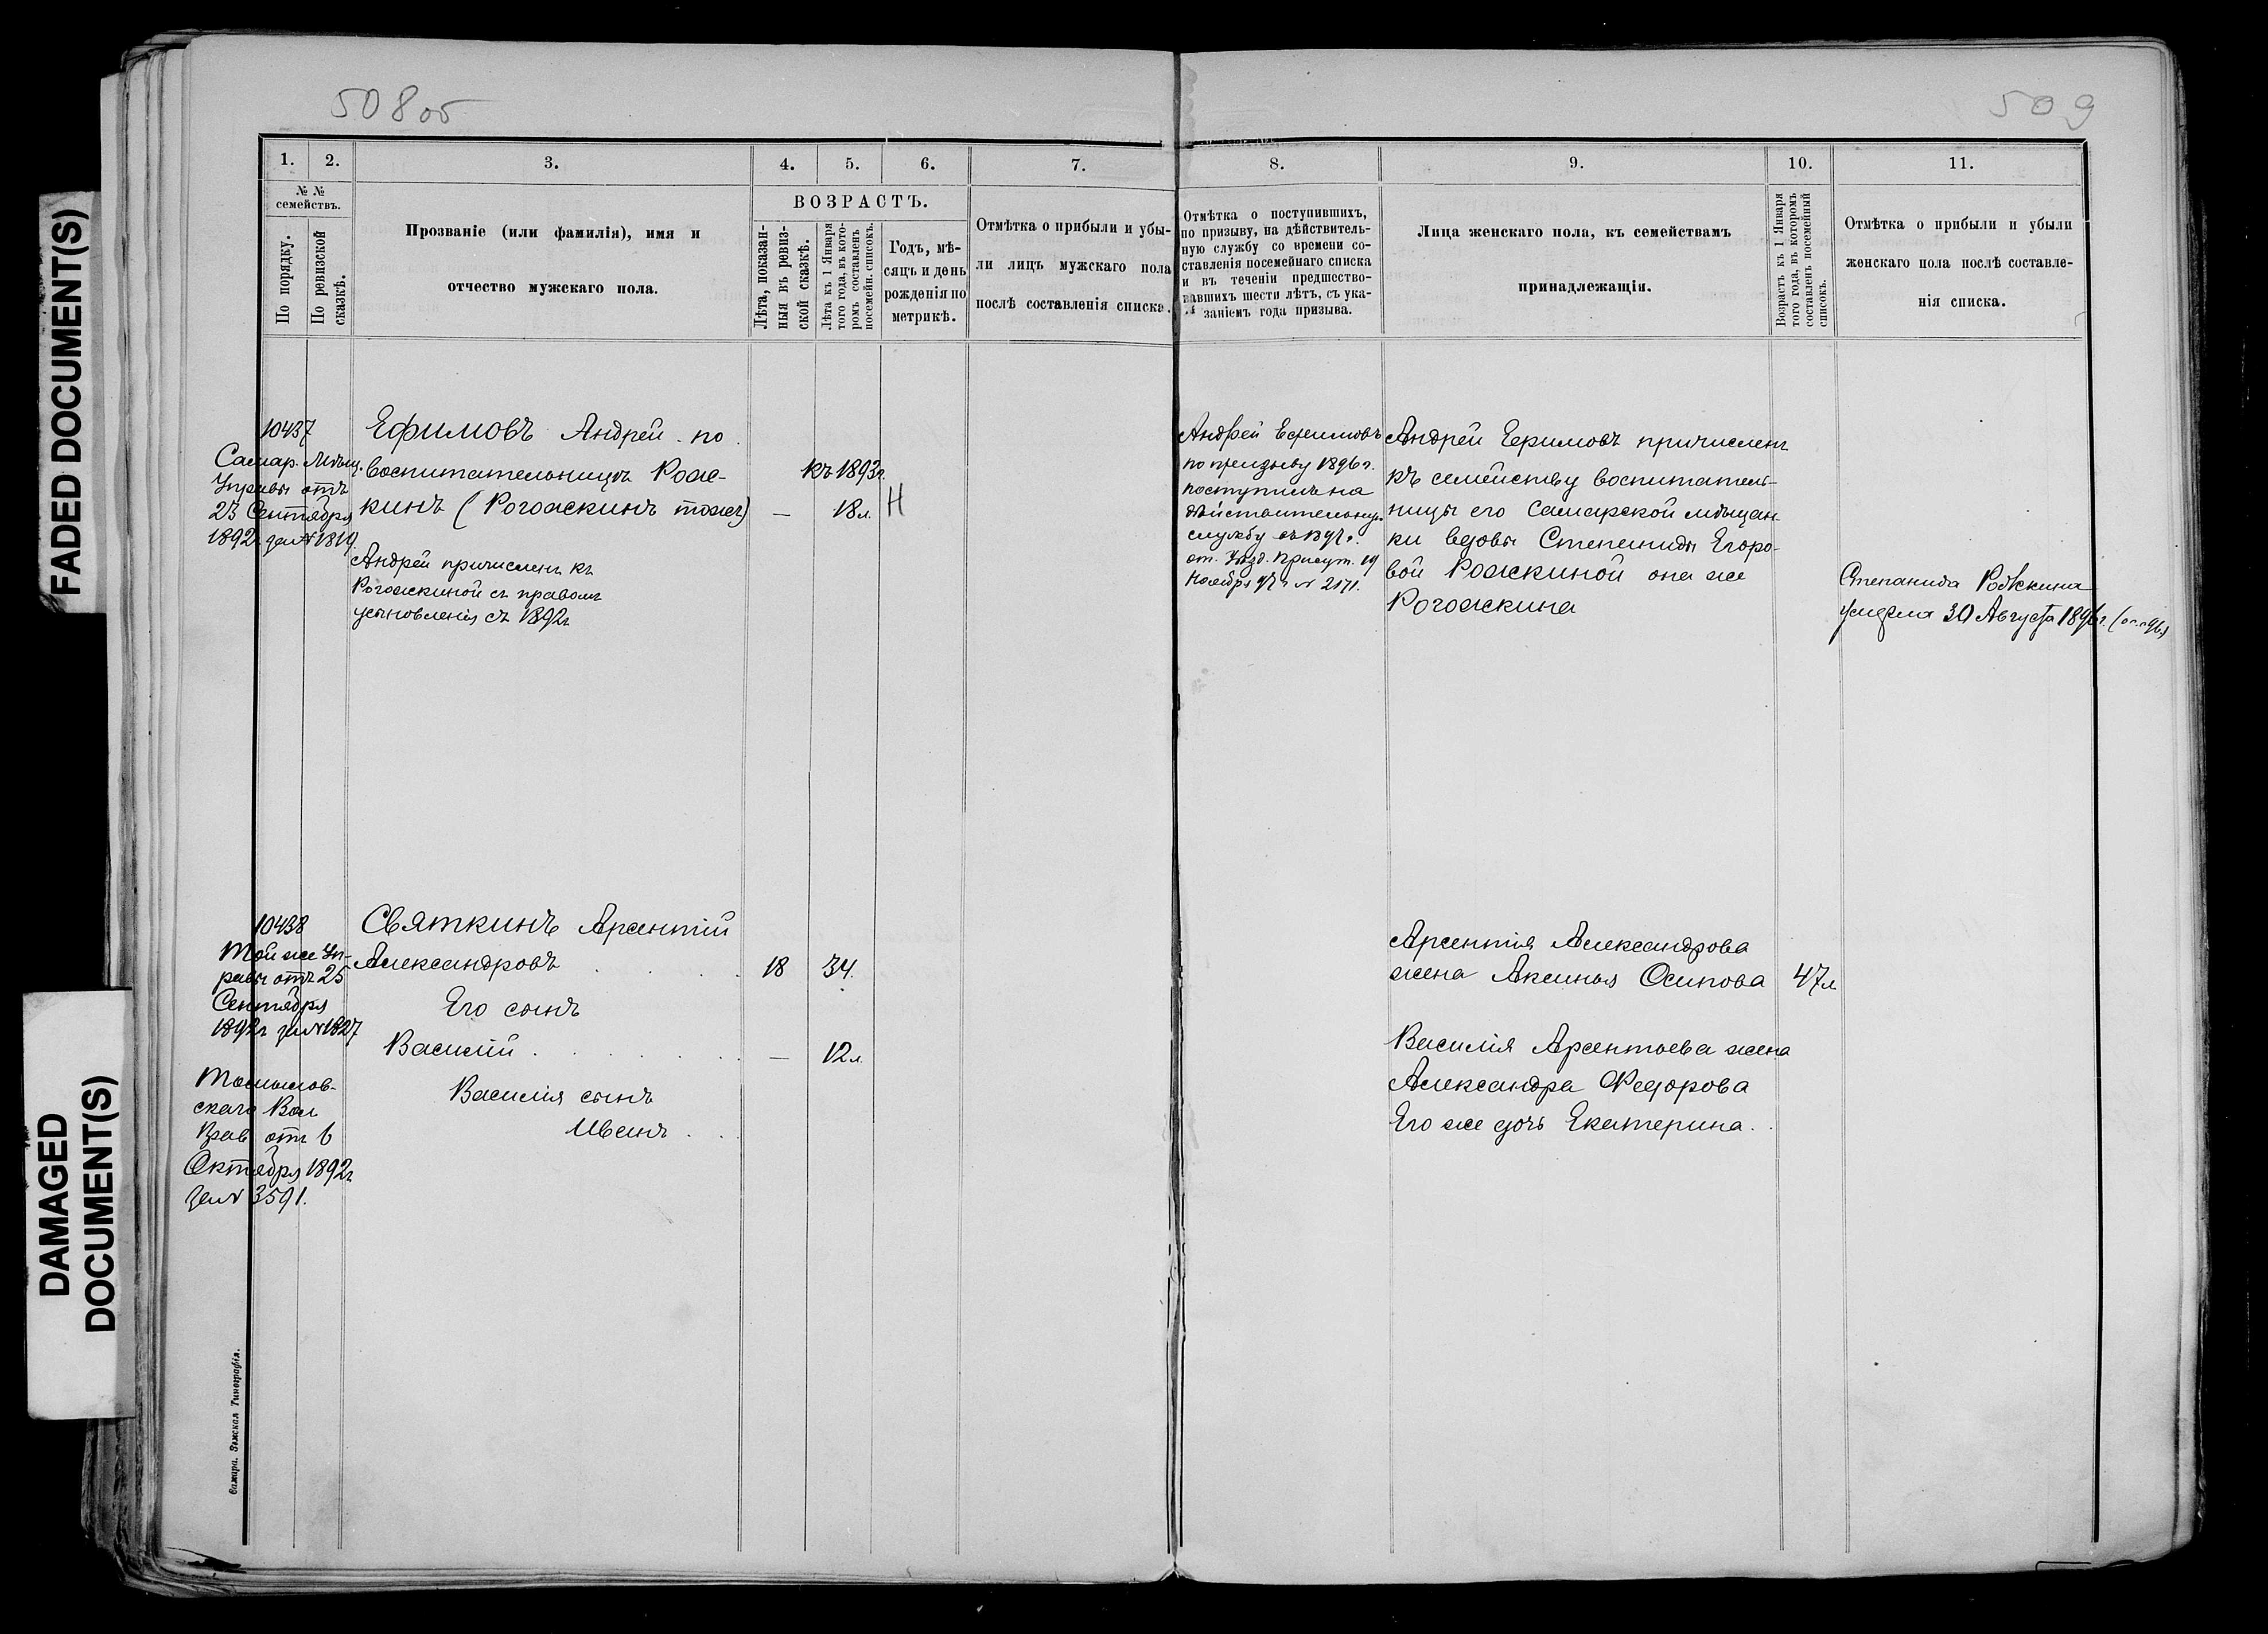 508об
509
FADED DOCUMENT(S)
DAMAGED
DOCUMENT(S)
1.
2.
3.
4.
5.
6.
7.
8.
9.
10.
11.
№ №
семействъ.
По порядку.
По ревизской
сказкѣ.
Прозваніе (или фамилія), имя и
отчество мужскаго пола.
ВОЗРАСТЪ.
Лѣта, показан-
ныя въ ревиз-
ской сказкѣ.
Лѣта къ 1 Января
того года, въ кото-
ромъ составленъ
посемейн. списокъ.
Годъ, мѣ-
сяцъ и день
рожденія по
метрикѣ.
Отмѣтка о прибыли и убы-
ли лицъ мужскаго пола
послѣ составленія списка.
Отмѣтка о поступившихъ,
по призыву, на дѣйствитель-
ную службу со времени со-
ставленія посемейнаго списка
и въ теченіи предшество-
вавшихъ шести лѣтъ, съ ука-
заніемъ года призыва.
Лица женскаго пола, къ семействамъ
принадлежащія.
Возрастъ къ 1 Января
того года, въ которомъ
составленъ посемейный
списокъ.
Отмѣтка о прибыли и убыли
женскаго пола послѣ составле-
нія списка.
10437
Самар. Мѣщ.
Управы отъ
23 Сентября
1892г за № 1819
Ефимовъ Андрей по
воспитательницѣ Рож-
кинъ (Рогожкинъ тожъ)
—
къ 1893г.
18 л.
Н
Андрей причисленъ къ
Рогожкиной съ правомъ
усыновленія съ 1892г
Андрей Ефимовъ
по призыву 1896 г.
поступилъ на
дѣйствительную
службу въ 1897 г.
от. Уѣзд. Присут. 19
Ноября 97 г № 2171.
Андрей Ефимовъ причисленъ
къ семейству воспитатель-
ницы его Самарской мѣщан-
ки вдовы Степаниды Егоро-
вой Рожкиной она же
Рогожкина
Степанида Рожкина
умерла 30 Августа 1896 г.
10438
Той же Уп-
равы отъ 25
Сентября
1892г за № 1827
Святкинъ Арсентій
Александровъ
18
34.
Его сынъ
Василій
—
12 л.
Василія сынъ
Иванъ
скаго Вол
Прав отъ 6
Октября 1892г
за № 3591.
Арсентія Александрова
жена Аксинья Осипова
47 л
Василія Арсентьева жена
Александра Федорова
Его же дочь Екатерина.
Самара. Земская Типографія.